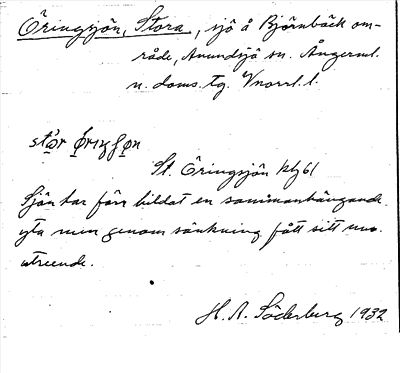 Öringsjön, Stora, sjö å Björnbäck om-
råde, Anundsjö sn. Ångerml.
n. doms. tg. Vnorrl. l.
St. Öringsjön kbg 61
Sjön har förr bildat en sammanhängande
yta men genom sänkning fått sitt nuv.
utseende.
H. A. Söderberg 1932